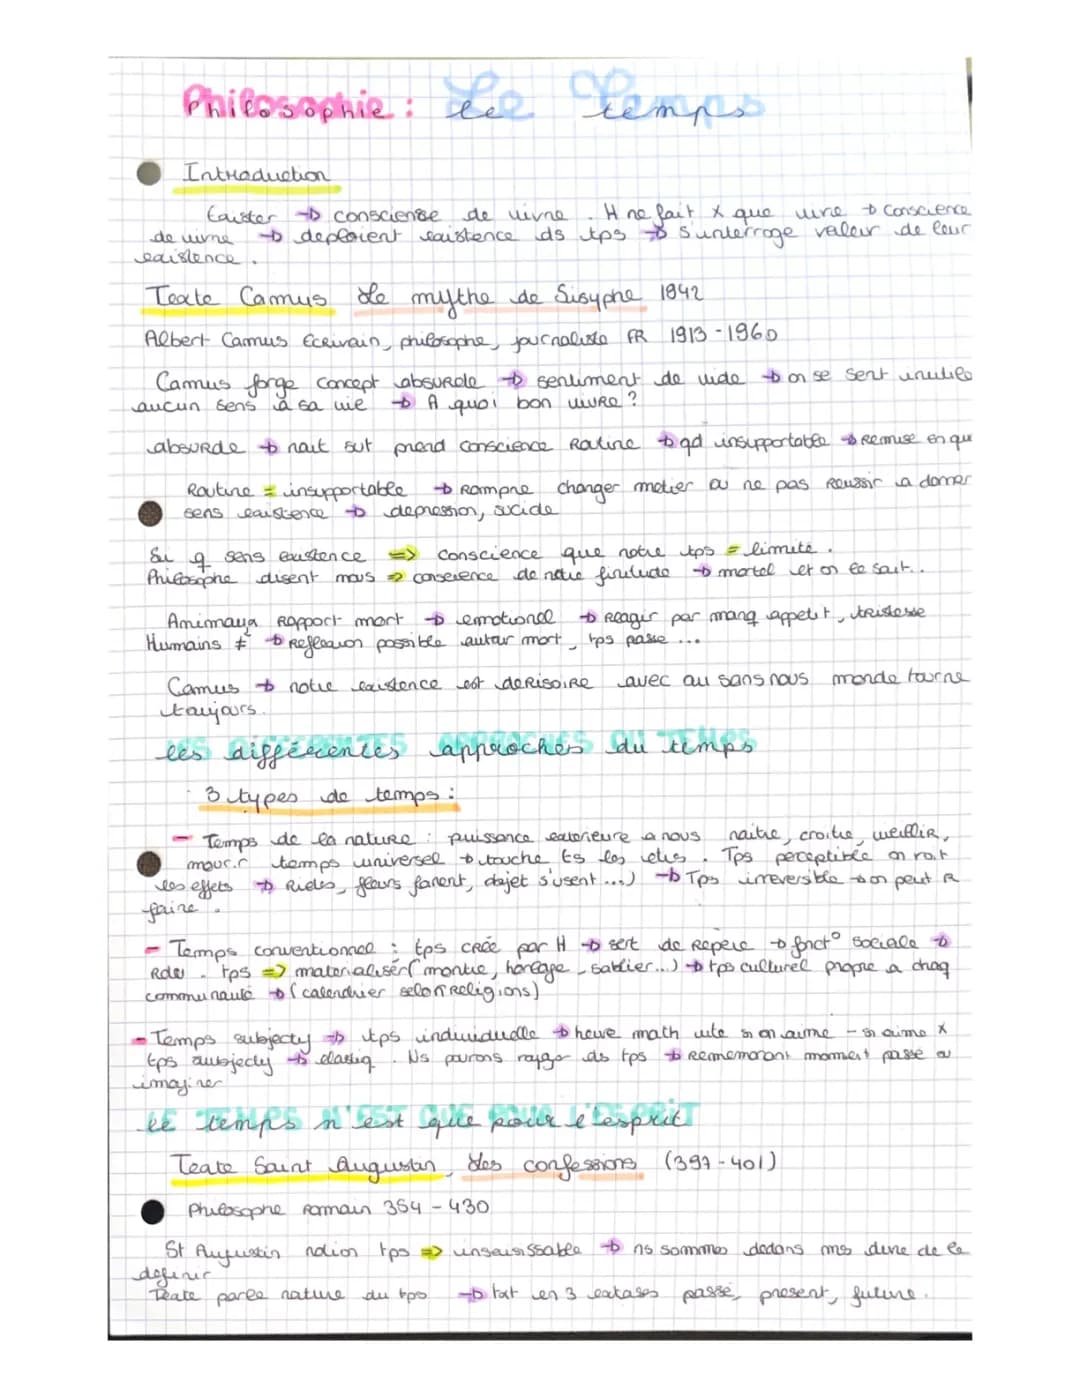 Philosophie : Le Temps
Introduction
Exister → consciense de vivre . H ne fait x que vivre → conscience
de vivre → deploient existence ds tps → s'interroge valeur de leur
existence .
Texte Camus Le mythe de Sisyphe 1942
Albert Camus Ecrivain, philosophe, journaliste FR 1913-1960
Camus forge concept absurde → sentiment de vide → on se sent inutile
aucun sens à sa vie → A quoi bon vivre ?
absurde → nait prend conscience Routine → qd insupportable → Remise en qu
Routine = insupportable → Rompre changer metier ou ne pas Reussir a donner
sens existence → depression, suicide
Si q sens existence => conscience que notre tps = limité .
Philosophe disent => conscience de notre finitude → mortel et on le sait..
Animaux Rapport mort → emotionel → Reagir par manq appetit, tristesse
Humains ≠ → Reflexion possible autour mort, tps passe ...
Camus → notre existence est deRisoiRe avec ou sans nous monde tourne
toujours.
les différentes approches du temps
3 types de temps :
- Temps de la nature : puissance exterieure a nous naitre, croitre, vieillir,
mourir temps universel → touche ts les etres . Tps perceptible on voit
les effets → Rides, fleurs fanent, objet s'usent ...) → Tps irreversible → on peut R
faire .
- Temps conventionnel : tps crée par H → sert de Repère → fonct° sociale →
Rdv . tps => materialiser (montre, horloge, sablier...) → tps culturel propre a chaq
communauté → (calendrier selon Religions)
- Temps subjectif → tps individuelle → heure math vite si on aime - si aime x
tps subjectif → elastiq . Ns pouvons ds tps → Rememorant moment passé ou
imaginer
LE TEMPS N'EST que pour l'esprit
Texte Saint Augustin, Les confessions (397-401)
Philosophe Romain 354 - 430
St Augustin notion tps => insaisissable → ns sommes dedans de le
definir
Texte parle nature du tps → en 3 extases passé, present, future.